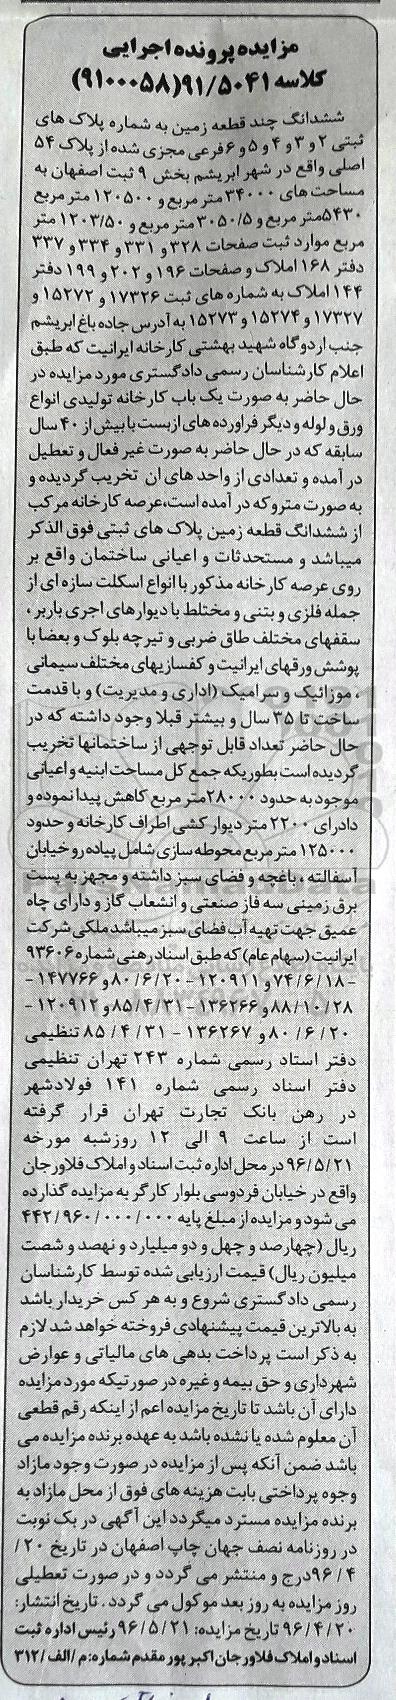 مزایده پرونده اجرایی
کلاسه ۹۱/۵۰۴۱(۹۱۰۰۰۵۸)
ششدانگ چند قطعه زمین به شماره پلاک های
ثبتی ۲ و ۳ و ۴ و ۵ و ۶ فرعی مجزی شده از پلاک ۵۴
اصلی واقع در شهر ابریشم بخش ۹ ثبت اصفهان به
مساحت های ۳۴۰۰۰ متر مربع و ۱۲۰۵۰۰ متر مربع
۵۴۳۰متر مربع و ۳۰۵۰/۵ متر مربع و ۱۲۰۳/۵۰ متر
مربع موارد ثبت صفحات ۳۲۸ و ۳۳۱ و ۳۳۴ و ۳۳۷
دفتر ۱۶۸ املاک و صفحات ۱۹۶ و ۲۰۲ و ۱۹۹ دفتر
۱۴۴ املاک به شماره های ثبت ۱۷۳۲۶ و ۱۵۲۷۲ و
۱۷۳۲۷ و ۱۵۲۷۴ و ۱۵۲۷۳ به آدرس جاده باغ ابریشم
جنب اردوگاه شهید بهشتی کارخانه ایرانیت که طبق
اعلام کارشناسان رسمی دادگستری مورد مزایده در
حال حاضر به صورت یک باب کارخانه تولیدی انواع
ورق و لوله و دیگر فراورده های ازبست با بیش از ۴۰ سال
سابقه که در حال حاضر به صورت غیر فعال و تعطیل
در آمده و تعدادی از واحد های ان تخریب گردیده و
به صورت متروکه در آمده است،عرصه کارخانه مرکب
از ششدانگ قطعه زمین پلاک های ثبتی فوق الذکر
میباشد و مستحدثات و اعیانی ساختمان واقع بر
روی عرصه کارخانه مذکور با انواع اسکلت سازه ای از
جمله فلزی و بتنی و مختلط با دیوارهای اجری باربر ،
سقفهای مختلف طاق ضربی و تیرچه بلوک و بعضا با
پوشش ورقهای ایرانیت و کفسازیهای مختلف سیمانی
، موزائیک و سرامیک (اداری و مدیریت) و با قدمت
ساخت تا ۳۵ سال و بیشتر قبلا وجود داشته که در
حال حاضر تعداد قابل توجهی از ساختمانها تخریب
گردیده است بطوریکه جمع کل مساحت ابنیه و اعیانی
موجود به حدود ۲۸۰۰۰متر مربع کاهش پیدا نموده و
دادرای ۲۲۰۰ متر دیوار کشی اطراف کارخانه و حدود
۱۲۵۰۰۰ متر مربع محوطه سازی شامل پیاده رو خیابان
آسفالته ، باغچه و فضای سبز داشته و مجهز به پست
برق زمینی سه فاز صنعتی و انشعاب گاز و دارای چاه
عمیق جهت تهیه آب فضای سبز میباشد ملکی شرکت
ایرانیت (سهام عام) که طبق اسناد رهنی شماره ۹۳۶۰۶
- ۷۴/۶/۱۸ و ۱۲۰۹۱۱ - ۸۰/۶/۲۰ و ۱۴۷۷۶۶ -
۸۸/۱۰/۲۸ و ۱۳۶۲۶۶ - ۸۵/۴/۳۱ و ۱۲۰۹۱۲ -
۸۰/۶/۲۰ و ۱۳۶۲۶۷ - ۸۵/۴/۳۱ تنظیمی
دفتر استاد رسمی شماره ۲۴۳ تهران تنظیمی
دفتر اسناد رسمی شماره ۱۴۱ فولادشهر
در رهن بانک تجارت تهران قرار گرفته
است از ساعت ۹ الی ۱۲ روزشبه مورخه
۹۶/۵/۲۱ در محل اداره ثبت اسناد و املاک فلاورجان
واقع در خیابان فردوسی بلوار کارگر به مزایده گذارده
می شود و مزایده از مبلغ پایه ۴۴۲/۹۶۰/۰۰۰/۰۰۰
ریال (چهارصد و چهل و دو میلیارد و نهصد و شصت
میلیون ریال) قیمت ارزیابی شده توسط کارشناسان
رسمی دادگستری شروع و به هر کس خریدار باشد
به بالاترین قیمت پیشنهادی فروخته خواهد شد لازم
به ذکر است پرداخت بدهی های مالیاتی و عوارض
شهرداری و حق بیمه و غیره در صورتیکه مورد مزایده
دارای آن باشد تا تاریخ مزایده اعم از اینکه رقم قطعی
آن معلوم شده یا نشده باشد به عهده برنده مزایده می
باشد ضمن آنکه پس از مزایده در صورت وجود مازاد
وجوه پرداختی بابت هزینه های فوق از محل مازاد به
برنده مزایده مسترد میگردد این آگهی در یک نوبت
در روزنامه نصف جهان چاپ اصفهان در تاریخ ۲۰/
۹۶/۴درج و منتشر می گردد و در صورت تعطیلی
روز مزایده به روز بعد موکول می گردد . تاریخ انتشار:
۹۶/۴/۲۰ تاریخ مزایده: ۹۶/۵/۲۱ رئیس اداره ثبت
اسناد و املاک فلاورجان اکبر پور مقدم شماره: م/الف/۳۱۲